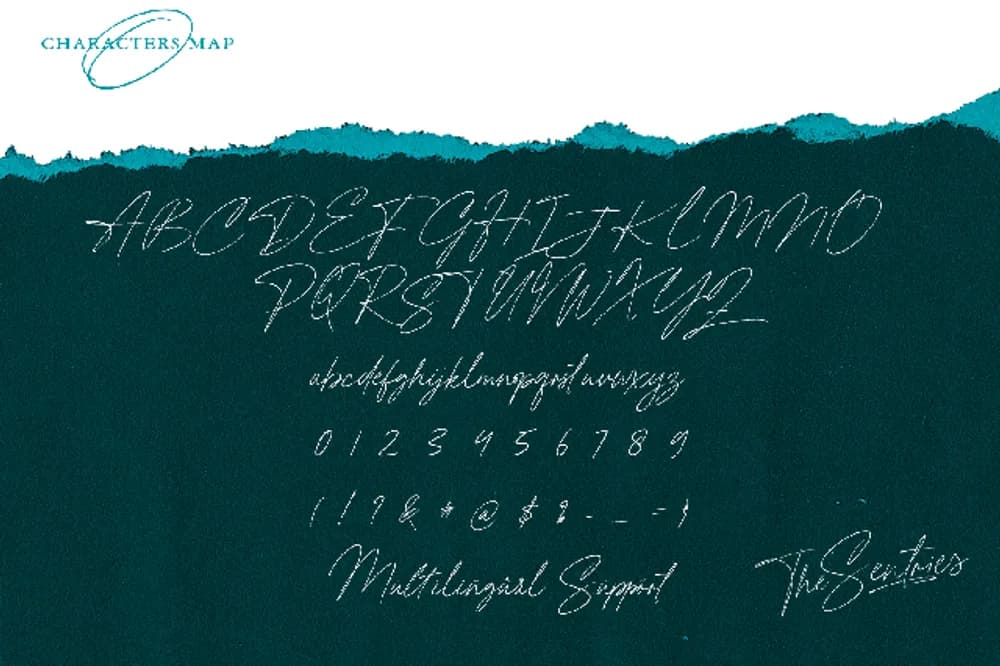 CHARACTERS MAP
ABCDEFGHIJKLMNO
PQRSTUVWXYZ
abcdefghijklmnopqrstuvwxyz
0 1 2 3 4 5 6 7 8 9
( ! ? & * @ $ % - _ = )
Multilingual Support
The Sentries